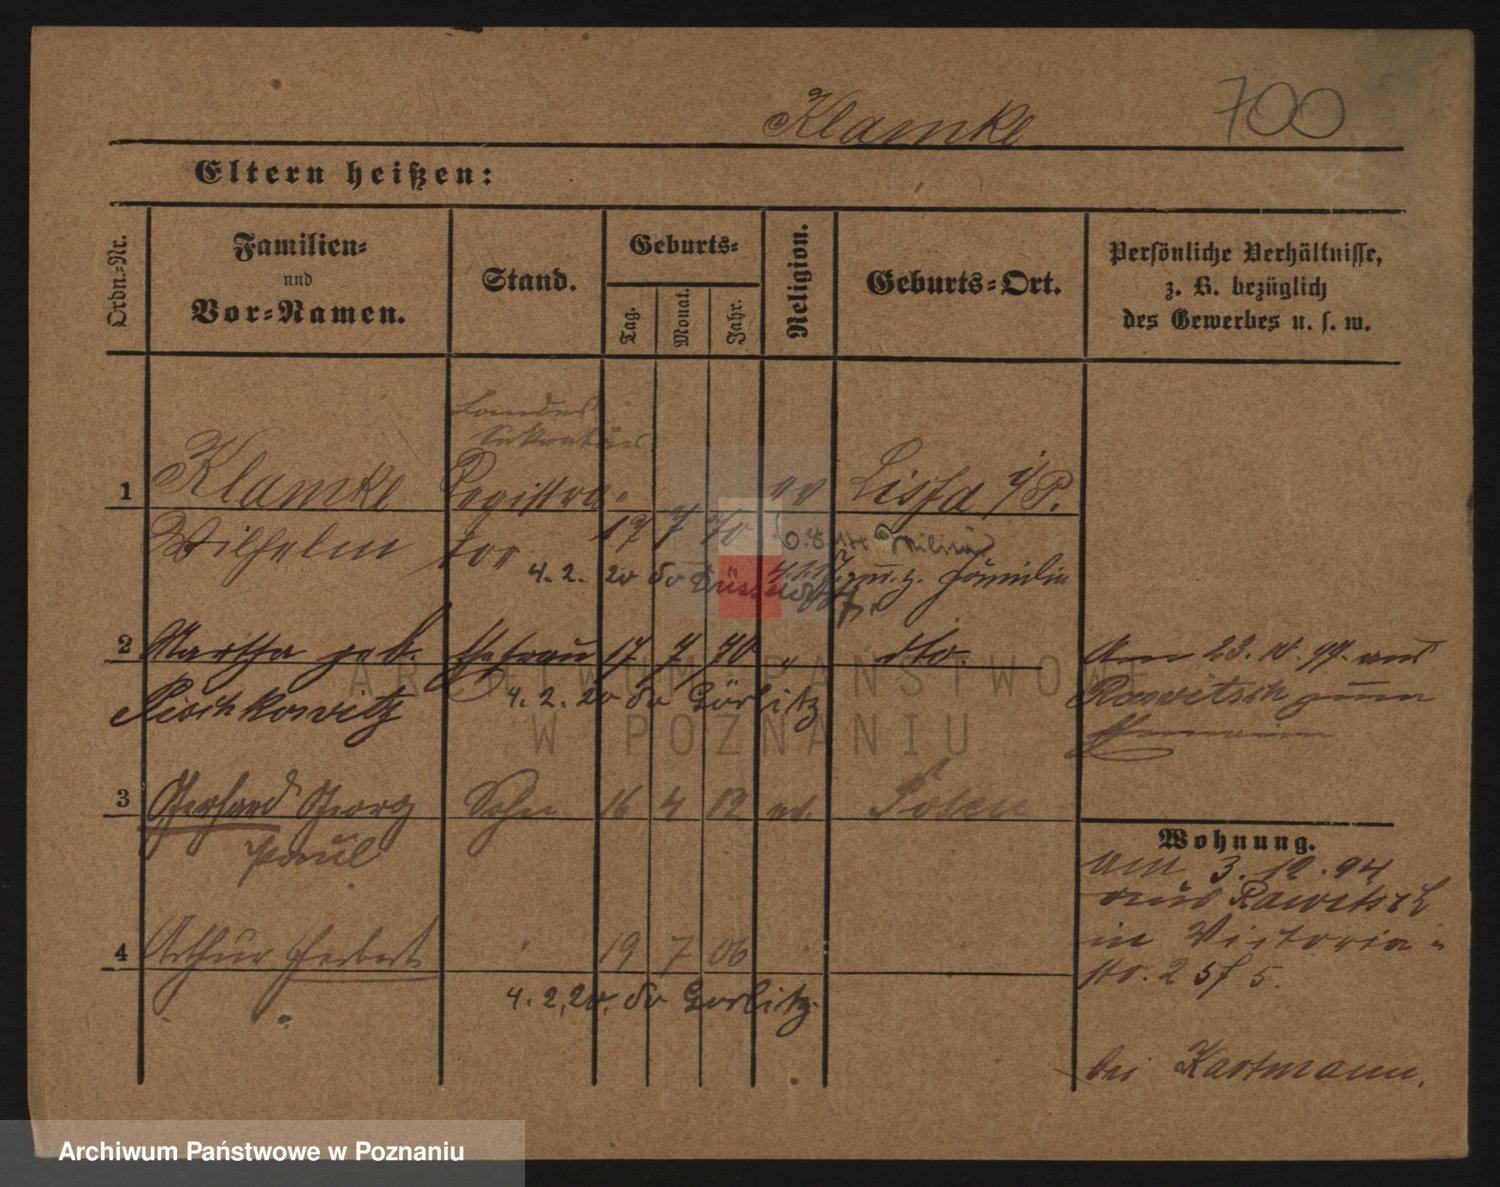 Klamke 700
Eltern heißen:
Ordn.-Nr.
Familien-
und
Vor-Namen.
Stand.
Geburts-
Tag.
Monat.
Jahr.
Religion.
Geburts-Ort.
Persönliche Verhältnisse,
z. B. bezüglich
des Gewerbes u. s. w.
Landes
Sekretär
1 Klamke Registra- ev Lissa i/P.
Wilhelm tor 17 7 70
4. 2. 20 do Düsseldorf z. Familie
2 Martha geb. Ehefrau 17 7 70 " dto.
Pischkowitz 4. 2. 20 do Görlitz
Am 23. 99. aus
Rawitsch zum
Ehemann
3 Gerhard Georg Sohn 16 4 02 ev. Posen
Paul
4 Arthur Herbert " 19 7 06 "
4. 2. 20. do Görlitz.
Wohnung.
am 3. 12. 94
aus Rawitsch
in Victoria-
str. 25 5.
bei Kartmann.
ARCHIWUM PAŃSTWOWE
W POZNANIU
Archiwum Państwowe w Poznaniu